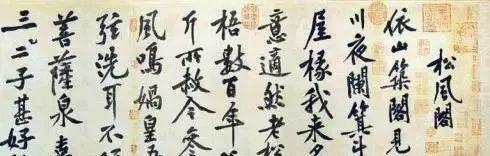 松風閣
依山築閣見
川夜闌箕斗
屋椽我來名
意適然老松
梧數百年
斤所赦今參
風鳴媧皇五
弦洗耳不
菩薩泉嘉
三二子甚好